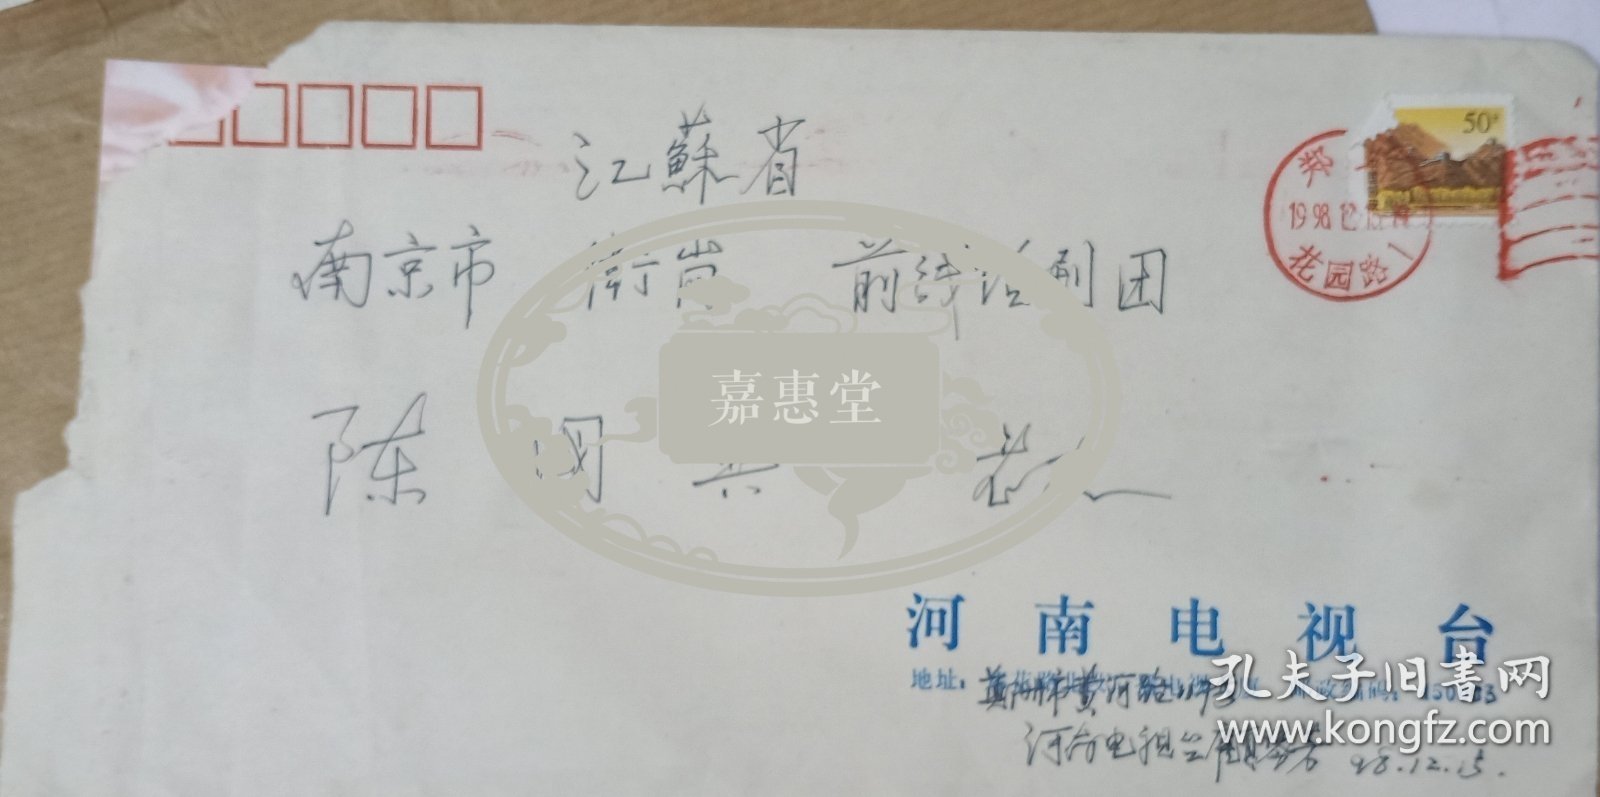 江蘇省
50分
郑
1998.12.15.
花园路1
南京市 衛崗 前线话剧团
嘉惠堂
陈
河南电视台
地址：
郑州市黄河路
孔夫子旧書网
www.kongfz.com
河南电视台
98.12.15.